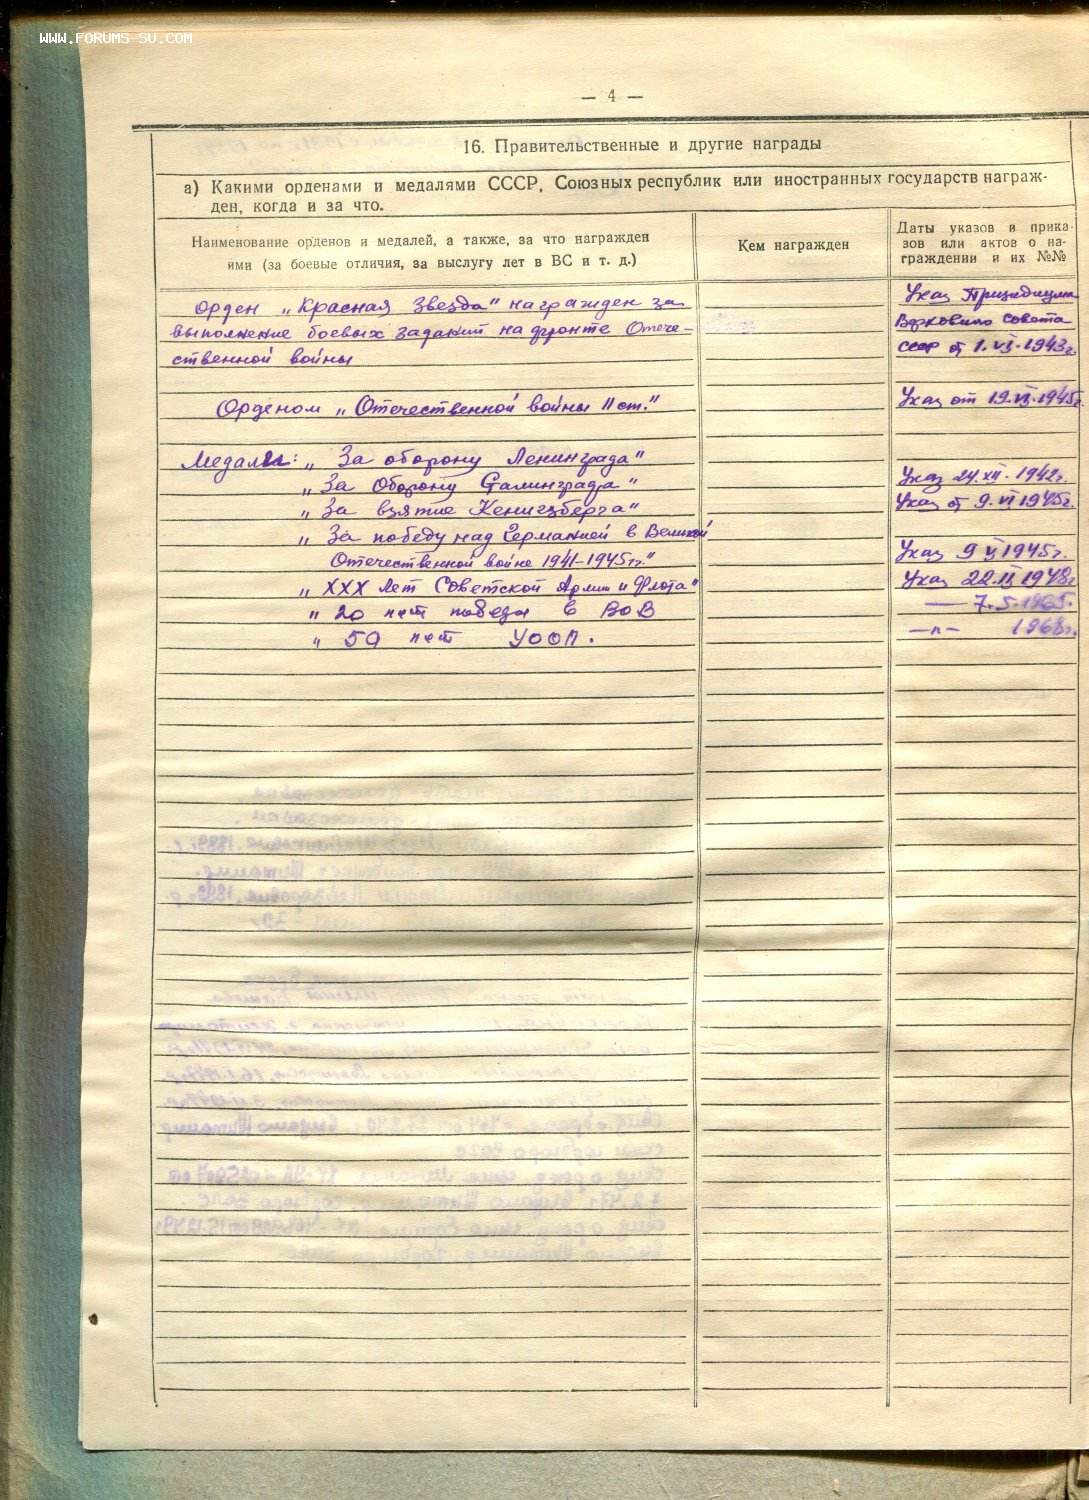 WWW.FORUMS-SU.COM
— 4 —
16. Правительственные и другие награды
а) Какими орденами и медалями СССР, Союзных республик или иностранных государств награж-
ден, когда и за что.
Наименование орденов и медалей, а также, за что награжден
ими (за боевые отличия, за выслугу лет в ВС и т. д.)
Кем награжден
Даты указов и прика-
зов или актов о на-
граждении и их №№
Орден „Красная Звезда" награжден за
выполнение боевых заданий на фронте Отече-
ственной войны
Указ Президиума
Верховного Совета
СССР от 1.VI.1943г.
Орденом „Отечественной войны II ст."
Указ от 19.VI.1945г.
Медали: „За оборону Ленинграда"
„За Оборону Сталинграда"
Указ 24.XII.1942г.
„За взятие Кенигзберга"
Указ от 9.VI 1945г.
„За победу над Германией в Великой
Отечественной войне 1941-1945гг."
Указ 9 V 1945г.
„XXX лет Советской Армии и Флота"
Указ 22.II 1948г
„20 лет победы в ВОВ
— 7.5.1965.
„50 лет УООП.
—"— 1968г.